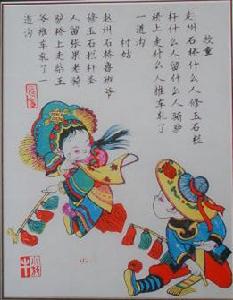 牧童
赵州石桥什么人修玉石栏
杆什么人留什么人骑驴
桥上走什么人推车轧了
一道沟
村姑
赵州石桥鲁班爷
修玉石栏杆圣
人留张果老骑
驴桥上走柴王
爷推车轧了一
道沟